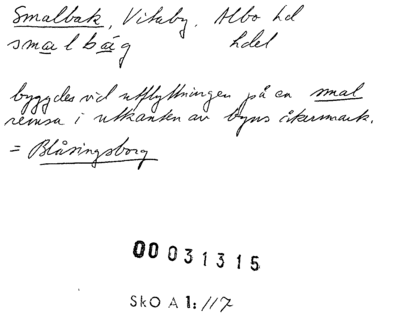 Smalbak, Vitaby, Albo hd
smalbàg hdel
byggdes vid utflyttningen på en smal
remsa i utkanten av byns åkermark.
= Blåsingsborg
00031315
SkO A 1:117